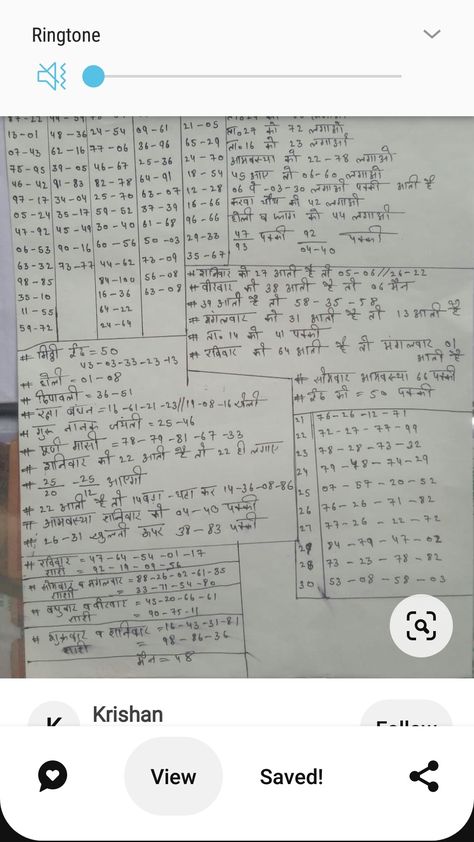 Ringtone
13-01 48-36 24-54 09-61 21-05
07-43 62-16 77-06 36-96 65-29
75-95 39-05 46-67 25-36 24-70
46-42 91-83 82-78 64-91 18-54
97-17 34-04 25-70 63-07 12-28
05-24 35-17 59-52 37-39 16-66
47-92 45-49 30-40 61-68 96-66
06-53 90-16 60-56 50-03 29-33
63-32 73-77 44-62 73-09 35-67
98-85 84-100 56-08
35-10 16-36 63-08
11-55 64-22
59-72 24-69
ता॰27 को 72 लगाओ
ता॰16 को 23 लगाओ
आमवस्या को 22-78 लगाओ
45 आए तो 06-60 लगाओ
करवा चौथ को 42 लगाओ
होली व फाग को 44 लगाओ
47/93 पक्की 92/04-40 पक्की
# शनिवार को 27 आती है तो 05-06//26-22
# वीरवार को 38 आती है तो 06 मैन
# 39 आती है तो 58-35-58
# मंगलवार को 31 आती है तो 13 आती है
# ता॰14 को 41 पक्की
# रविवार को 64 आती है तो मंगलवार 01 आती है
# सोमवार आमवस्या 66 पक्की
# ईद की = 50 पक्की
# मिठ्ठी ईद = 50
43-03-33-23-13
# होली - 01-08
# दिपावली = 36-51
# रक्षा बंधन = 16-61-21-23//19-08-16
# गुरू नानक जयंती = 25-46
# पूर्ण मासी = 78-79-81-67-33
# शनिवार को 22 आती है तो 22 ही लगाए
# 25/20 -25 आएगी
# 22 आती है तो 14 14-36-08-86
# आमवस्या शनिवार को 04-40 पक्की
# 26-31 खुलती ऊपर 38-83 पक्की
# रविवार = 47-64-54-01-17
सारी = 92-19-09-56
# सोमवार व मंगलवार = 88-26-02-61-35
सारी = 33-71-54-80
# बुधवार व वीरवार = 43-20-66-61
= 90-75-11
# शुक्रवार व शनिवार = 16-43-31-81
सारी = 98-86-36
मैन = 48
21 76-26-12-71
22 72-27-77-99
23 78-28-73-32
24 79-48-74-29
25 07-57-20-52
26 76-26-71-82
27 77-26-22-72
28 84-79-47-02
29 73-23-78-82
30 53-08-58-03
K
Krishan
Follow
View
Saved!